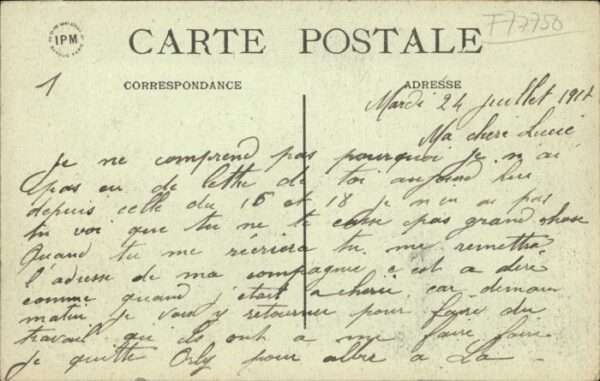 IPM
F77750
CARTE POSTALE
CORRESPONDANCE
ADRESSE
1
Mardi 24 juillet 191
Ma cheri Lucie
Je ne comprend pas pourquoi je n'ai
pas eu de lettre de toi aujourd hui
depuis celle du 16 et 18 je n en ai pas
tu voi que tu ne te casse pas grand chose
Quand tu me récrira tu me remettra
l'adresse de ma compagnie c est a dire
comme quand j etait a car demain
matin je vais y retourner pour faire du
travail qu ils ont a me faire faire
Je quitte Orly pour aller a La